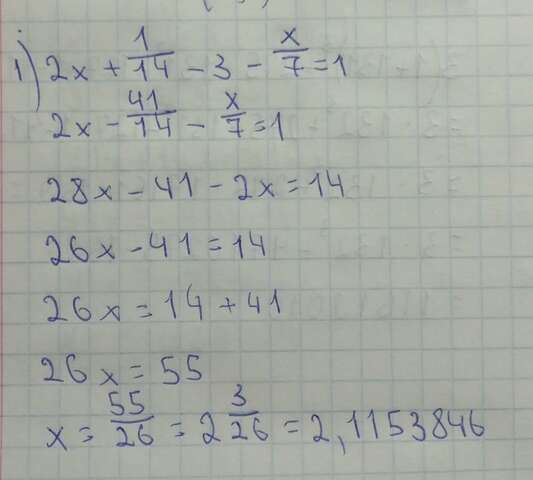 i) 2x + 1/14 - 3 - x/7 = 1
2x - 41/14 - x/7 = 1
28x - 41 - 2x = 14
26x - 41 = 14
26x = 14 + 41
26x = 55
x = 55/26 = 2 3/26 = 2,1153846